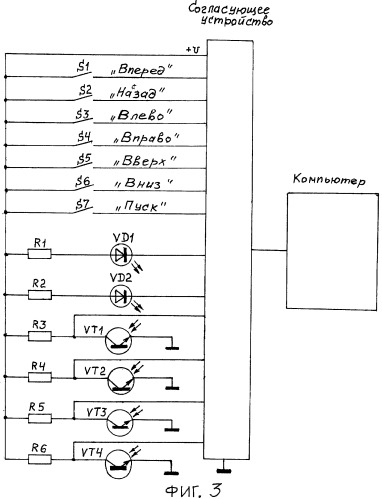 Согласующее
устройство
+U
S1 „Вперед"
S2 „Назад"
S3 „Влево"
S4 „Вправо"
S5 „Вверх"
S6 „Вниз"
S7 „Пуск"
Компьютер
R1 VD1
R2 VD2
R3 VT1
R4 VT2
R5 VT3
R6 VT4
ФИГ. 3